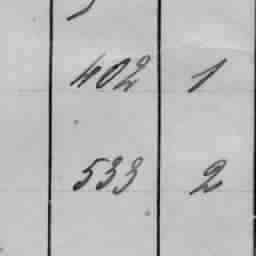 402 1
533 2